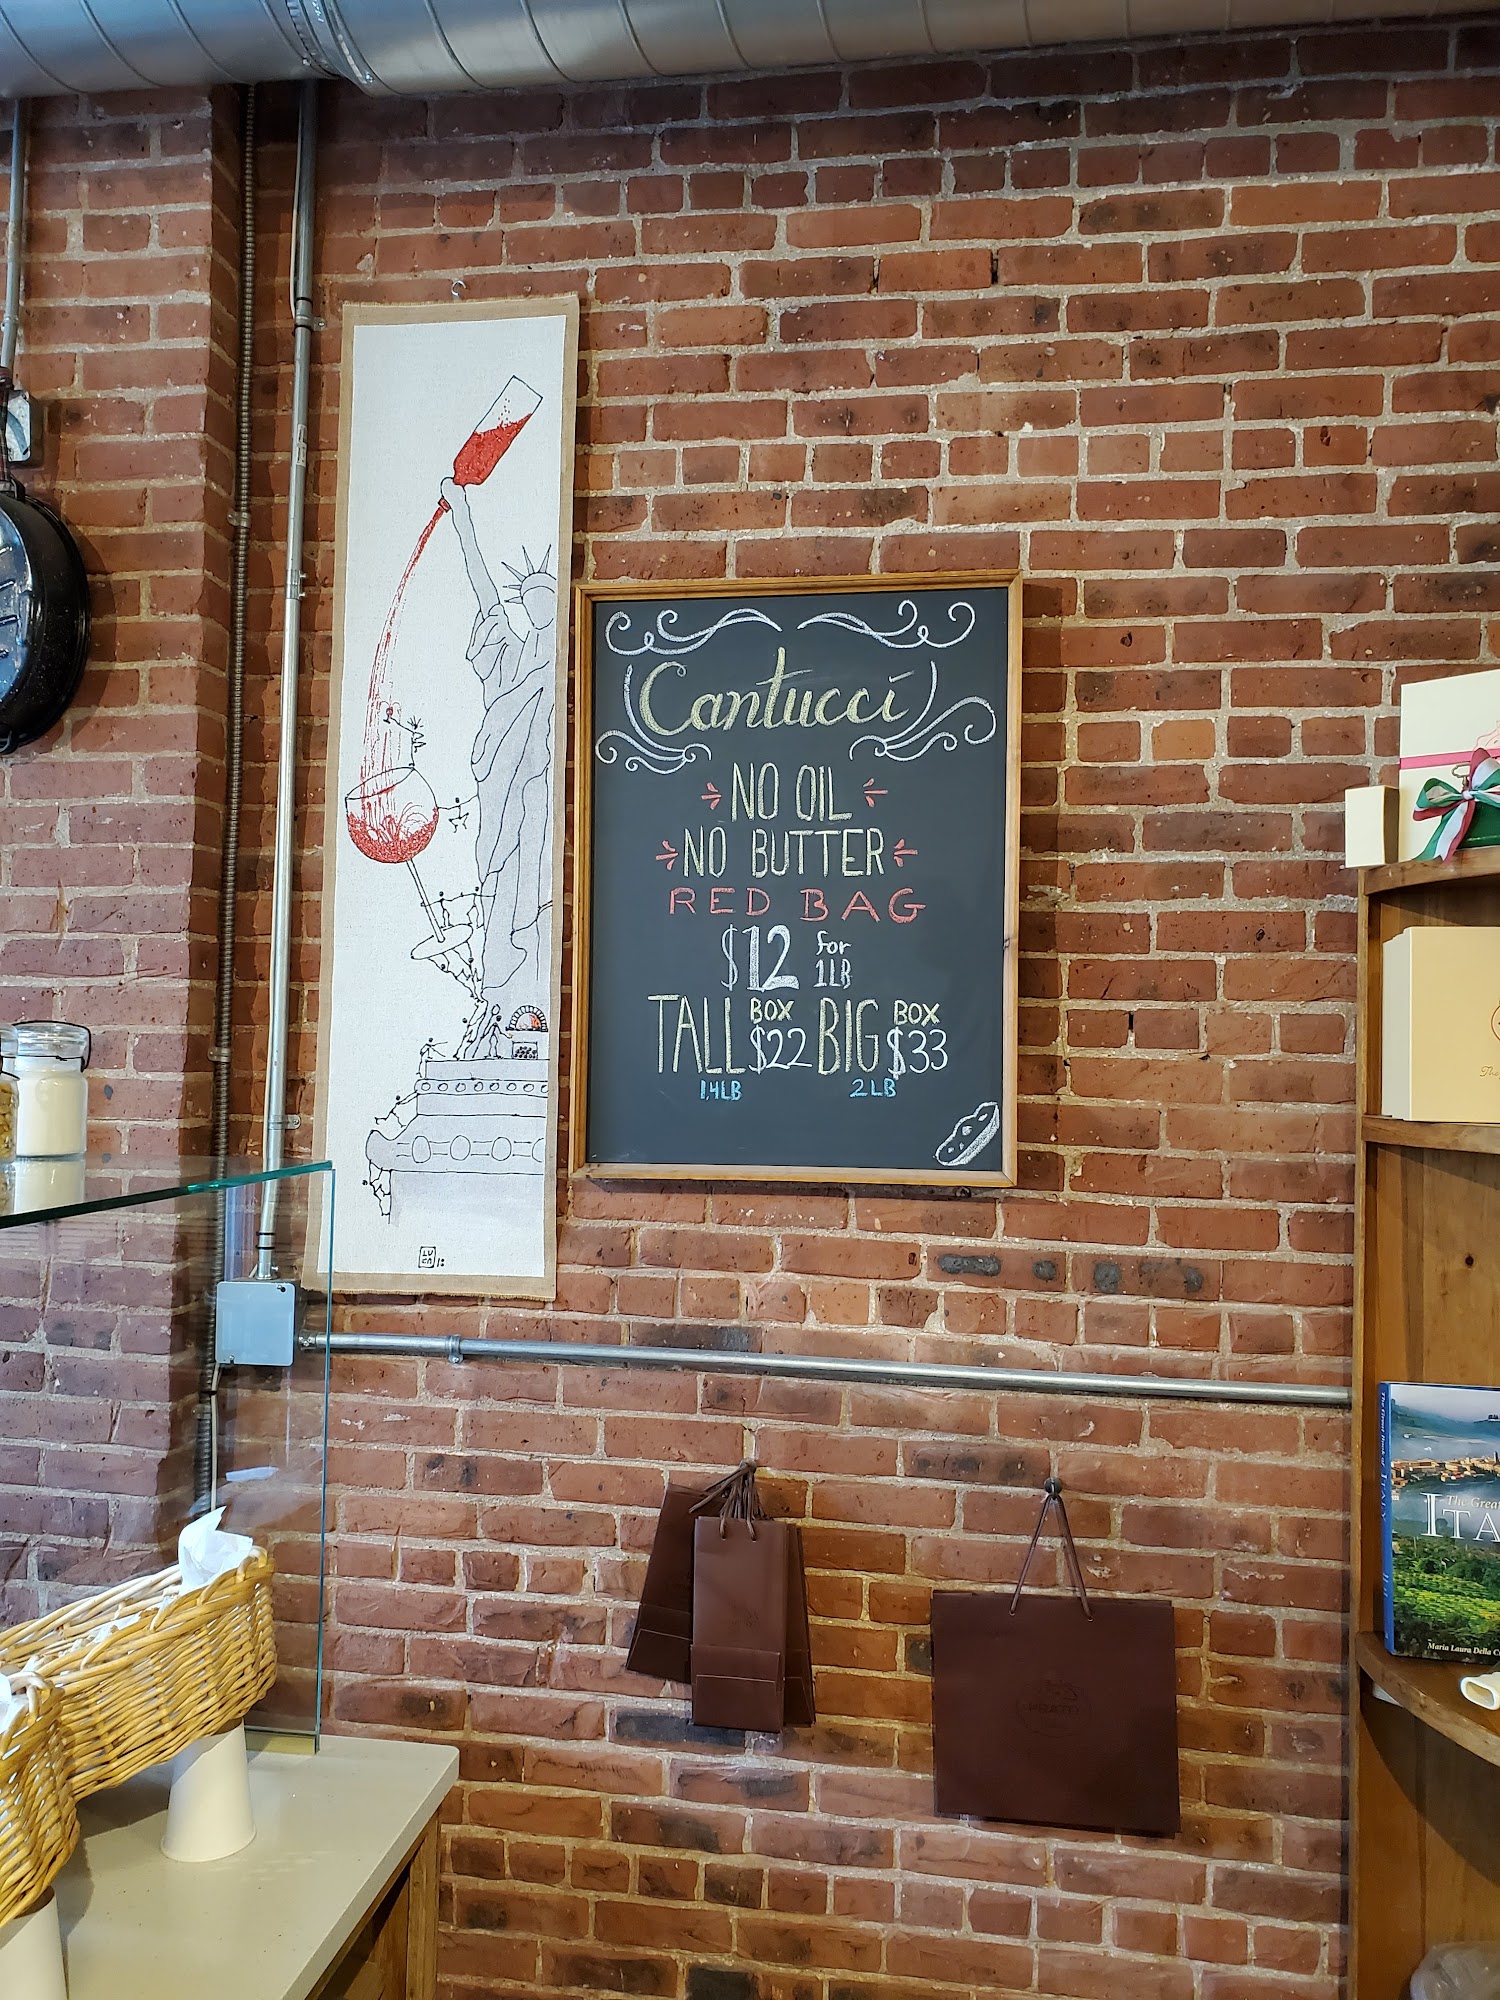 Cantucci
NO OIL
NO BUTTER
RED BAG
$12 for 1LB
TALL BOX $22 BIG BOX $33
1,4LB 2LB
LU
CA
PRATO
The Great
ITA
Maria Laura Della C
The